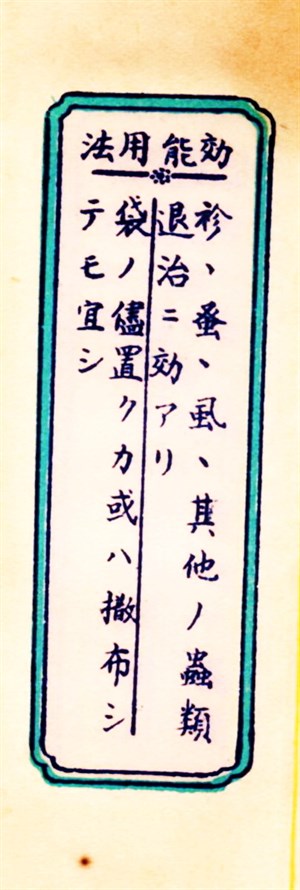 効能用法
袗、蚤、虱、其他ノ蟲類
退治ニ効アリ
袋ノ儘置クカ或ハ撒布シ
テモ宜シ